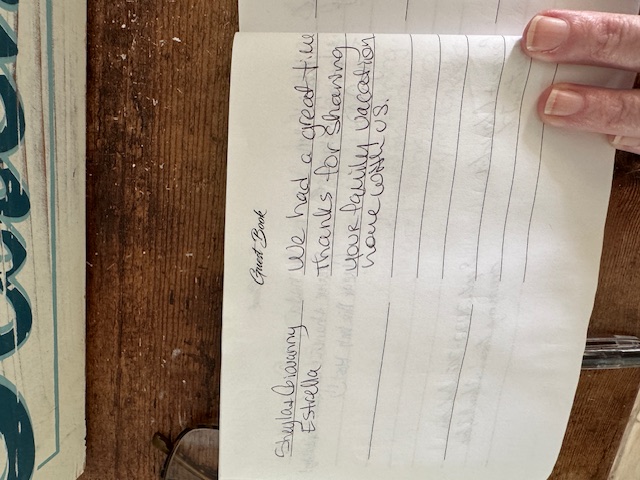 Guest Book
Sheyla & Giovanny
Estrella
We had a great time
Thanks for Sharing
your family vacation
home with us.